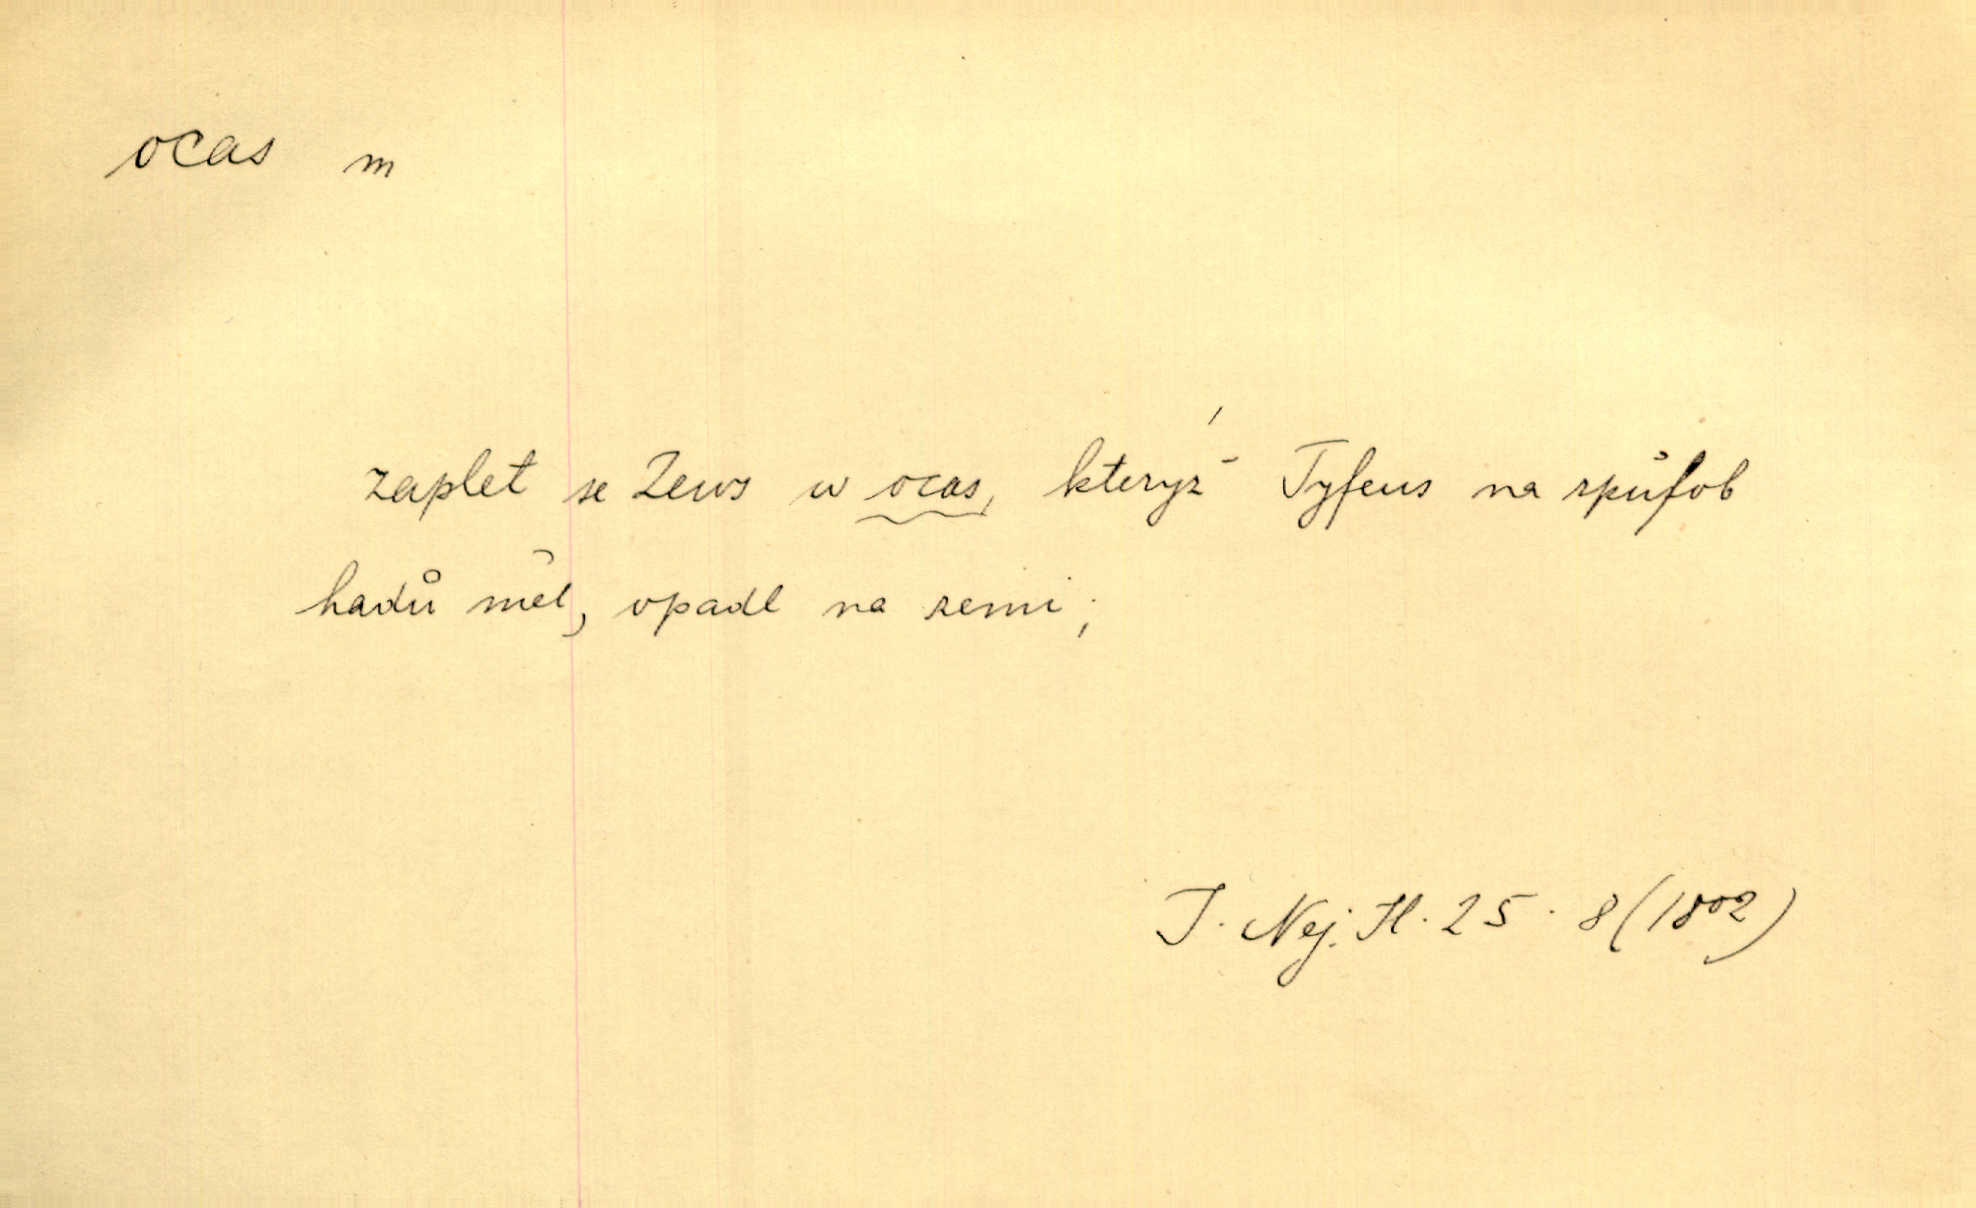 ocas m
zaplet se Zews w ocas, kterýž Tyfeus na spůſob
hadů měl, opadl na zemi;
J. Nej. Hl. 25. 8 (1802)